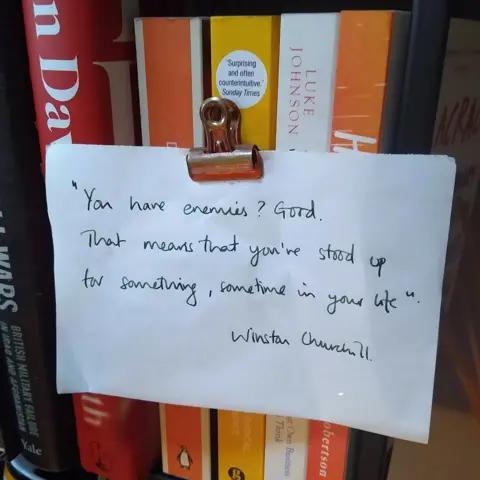 n Da
'Surprising
and often
counterintuitive.'
Sunday Times
LUKE
JOHNSON
"You have enemies? Good.
That means that you've stood up
for something, sometime in your life".
Winston Churchill.
WARS
BRITISH MILITARY FAILURE
IN IRAQ AND AFGHANISTAN
Yale
th
Own Business
Think
Robertson